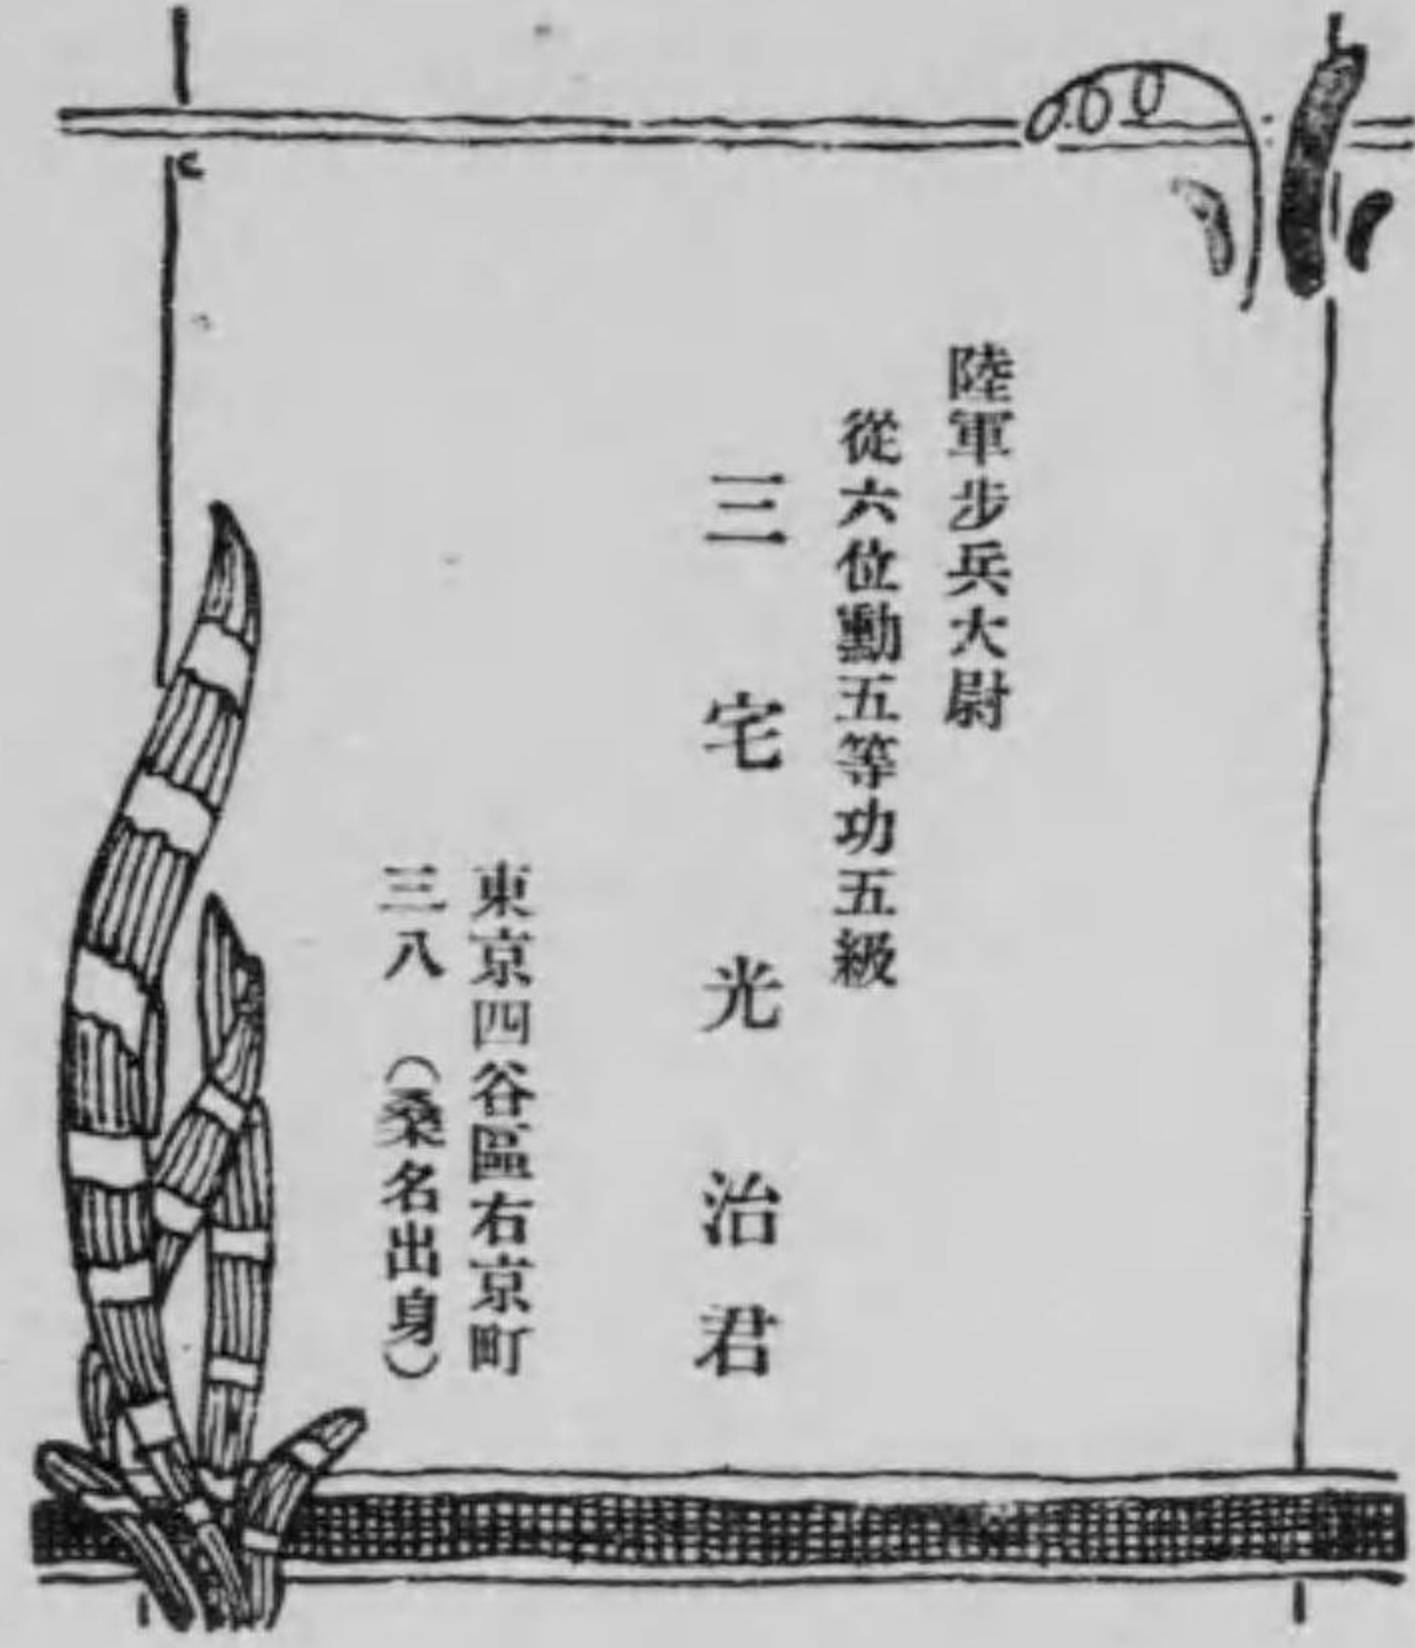 陸軍步兵大尉
從六位勳五等功五級
三宅光治君
東京四谷區右京町
三八 （桑名出身）